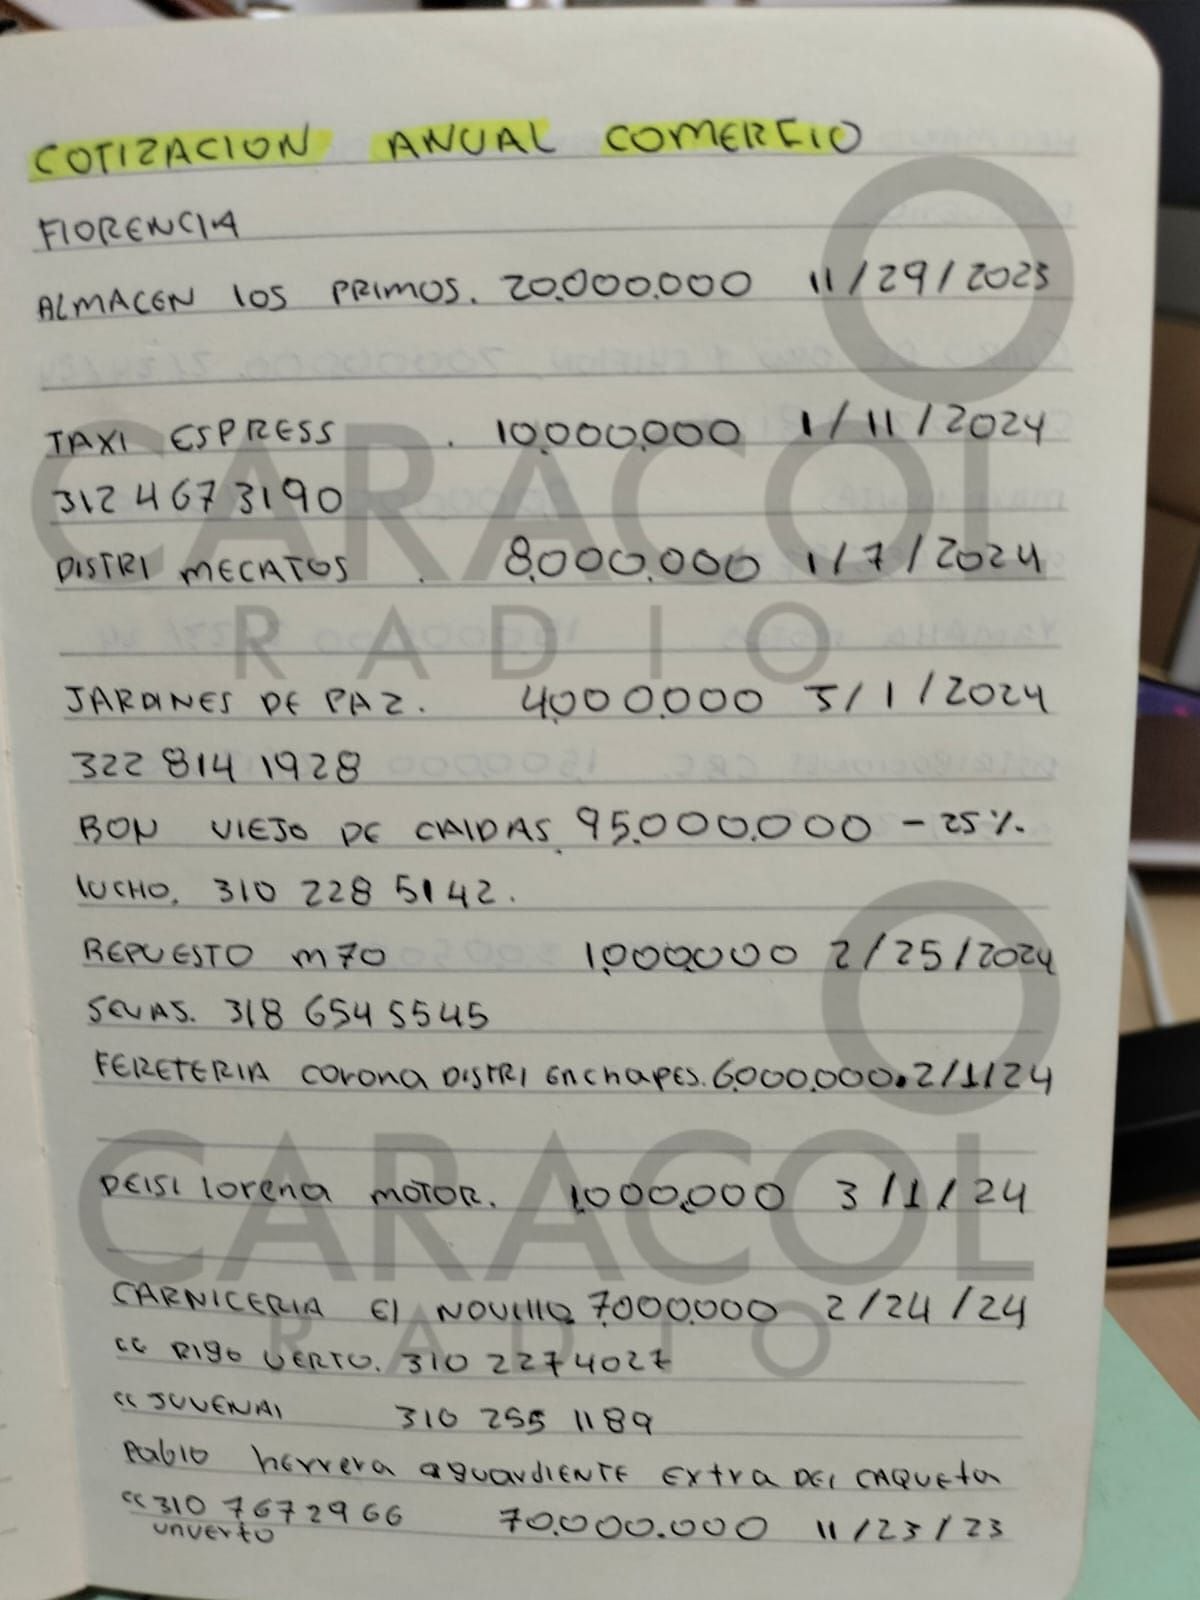 COTIZACION ANUAL COMERCIO
FlORENCIA
ALMACEN lOS PRIMOS. 20.000.000 11/29/2023
TAXI ESPRESS . 10.000.000 1/11/2024
312 467 3190
DISTRI MECATOS . 8.000.000 1/7/2024
JARDINES DE PAZ. 4.000.000 5/1/2024
322 814 1928
RON VIEJO DE CALDAS. 95.000.000 - 25%.
lUCHO, 310 228 5142.
REPUESTO m70 1.000.000 2/25/2024
318 654 5545
FERETERIA corona DISTRI EnchAPES. 6.000.000. 2/1/24
DEISI lorena MOTOR. 1.000.000 3/1/24
CARNICERIA El NOVILLO 7.000.000 2/24/24
cc RIgo VERTO. 310 227 4027
cc JUVENAl 310 255 1189
Pablo herrera aguardIENTE Extra DEl CAQUEta
cc 310 767 2966 70.000.000 11/23/23
unverto
CARACOL
RADIO
CARACOL
RADIO